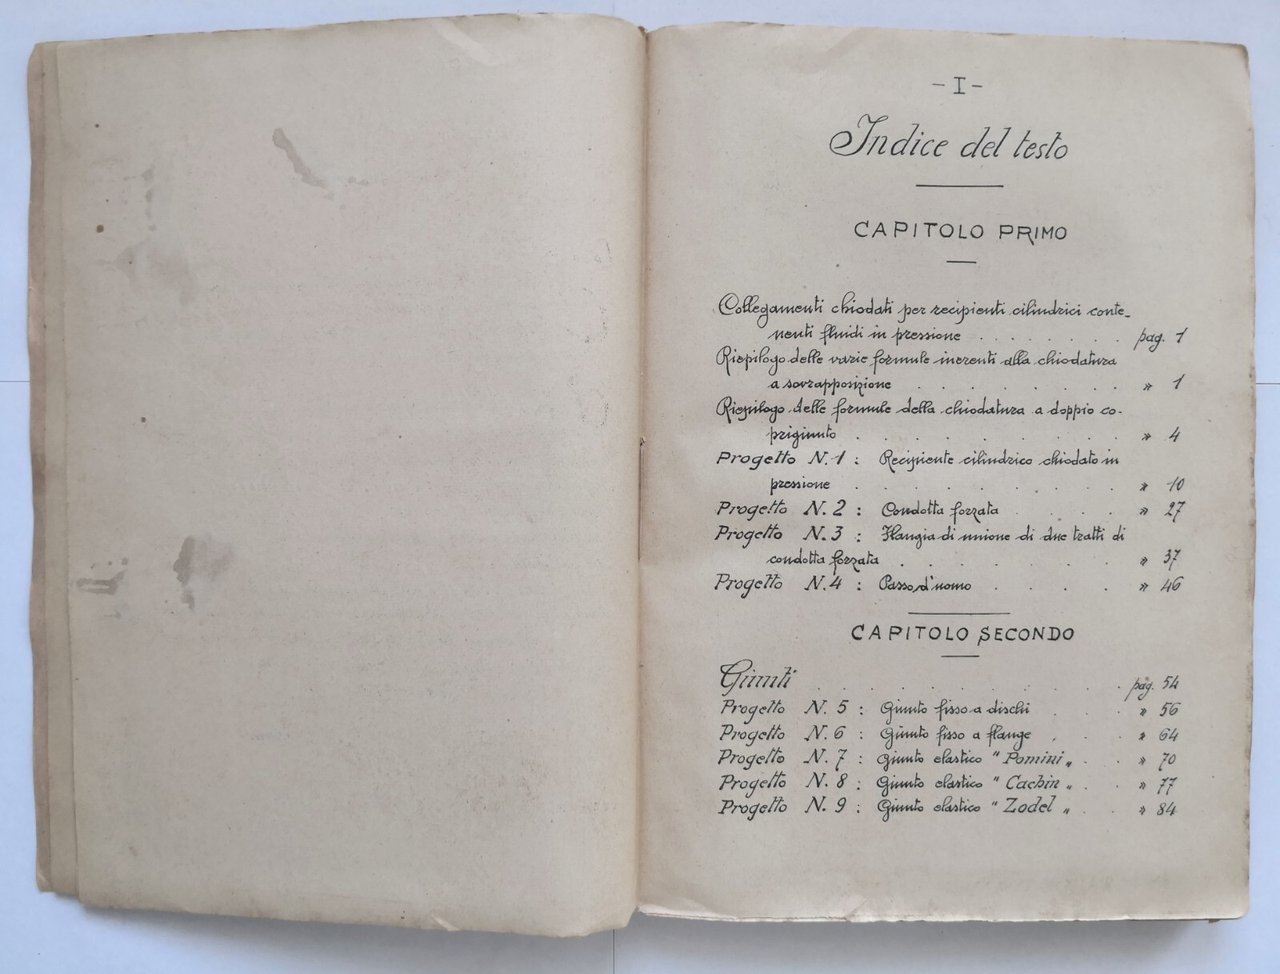 - I -
Indice del testo
CAPITOLO PRIMO
Collegamenti chiodati per recipienti cilindrici conte-
nenti fluidi in pressione . . . . . . . pag. 1
Riepilogo delle varie formule inerenti alla chiodatura
a sovrapposizione . . . . . . . . » 1
Riepilogo delle formule della chiodatura a doppio co-
prigiunto . . . . . . . . . . » 4
Progetto N. 1 : Recipiente cilindrico chiodato in
pressione . . . . . . . . . . » 10
Progetto N. 2 : Condotta forzata . . . . » 27
Progetto N. 3 : Flangia di unione di due tratti di
condotta forzata . . . . . . . . » 37
Progetto N. 4 : Passo d'uomo . . . . » 46
CAPITOLO SECONDO
Giunti . . . . . . . . . . . pag. 54
Progetto N. 5 : Giunto fisso a dischi . . . » 56
Progetto N. 6 : Giunto fisso a flange . . . » 64
Progetto N. 7 : Giunto elastico " Pomini „ . . » 70
Progetto N. 8 : Giunto elastico " Cachin „ . . » 77
Progetto N. 9 : Giunto elastico " Zodel „ . . » 84